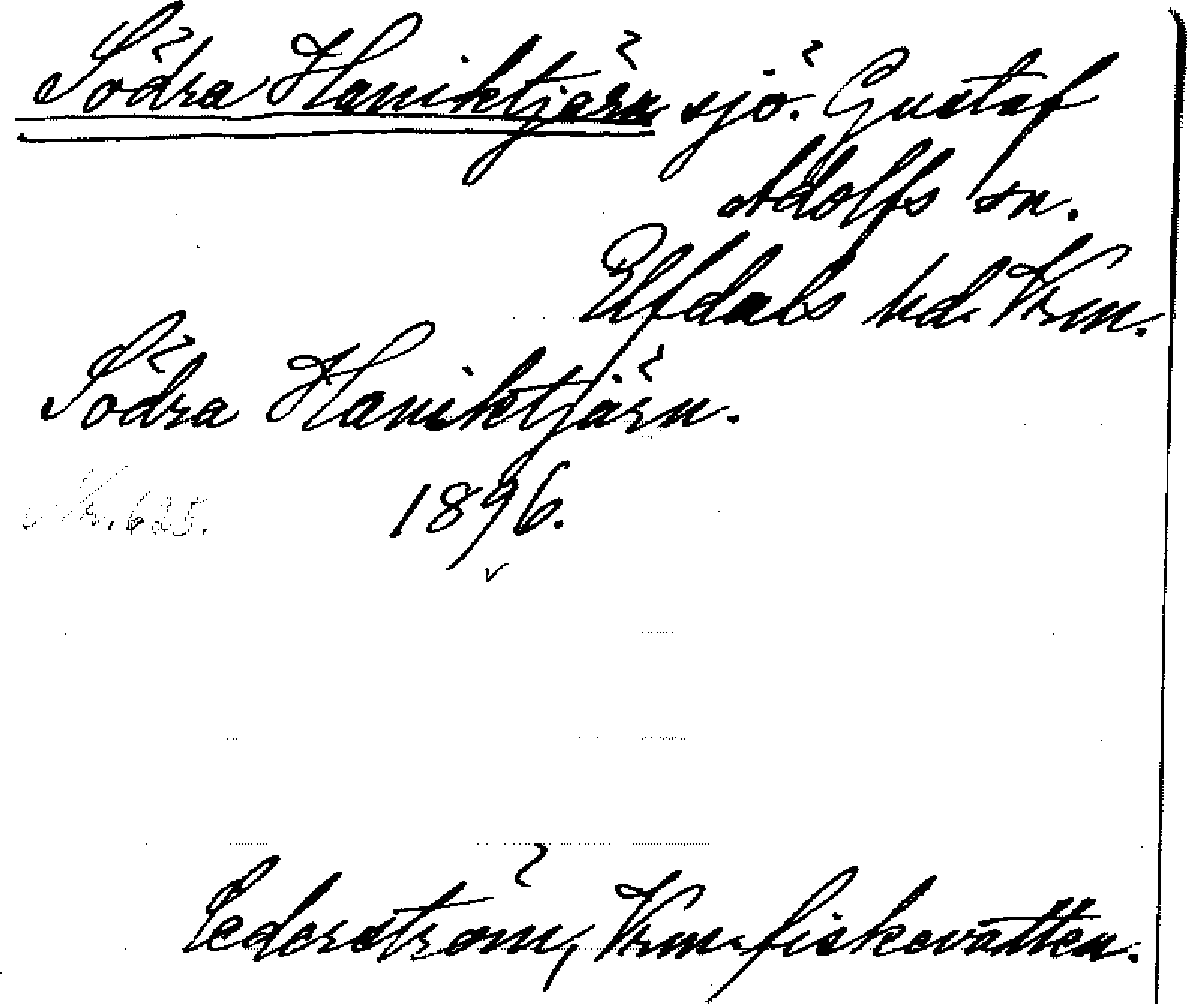 Södra Haniktjärn sjö. Gustaf
Adolfs sn.
Elfdals hd. Vrm.
Södra Haniktjärn.
Nr. 625. 1896.
Cederström, Vrm. fiskevatten.